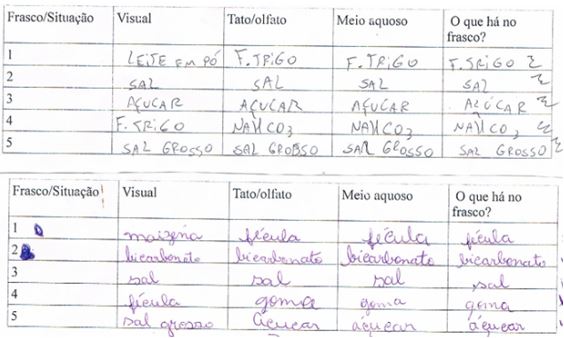 Frasco/Situação Visual Tato/olfato Meio aquoso O que há no frasco?
1 LEITE EM PÓ F. TRIGO F. TRIGO F. TRIGO
2 SAL SAL SAL SAL
3 AÇUCAR AÇUCAR AÇUCAR AÇÚCAR
4 F. TRIGO NAHCO3 NAHCO3 NAHCO3
5 SAL GROSSO SAL GROSSO SAL GROSSO SAL GROSSO
Frasco/Situação Visual Tato/olfato Meio aquoso O que há no frasco?
1 maizena fécula fécula fécula
2 bicarbonato bicarbonato bicarbonato bicarbonato
3 sal sal sal sal
4 fécula goma goma goma
5 sal grosso açucar açucar açucar